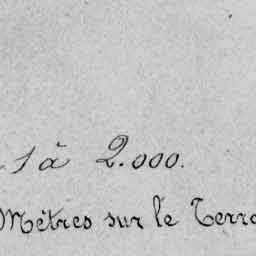 1 à 2.000.
Mètres sur le Terra